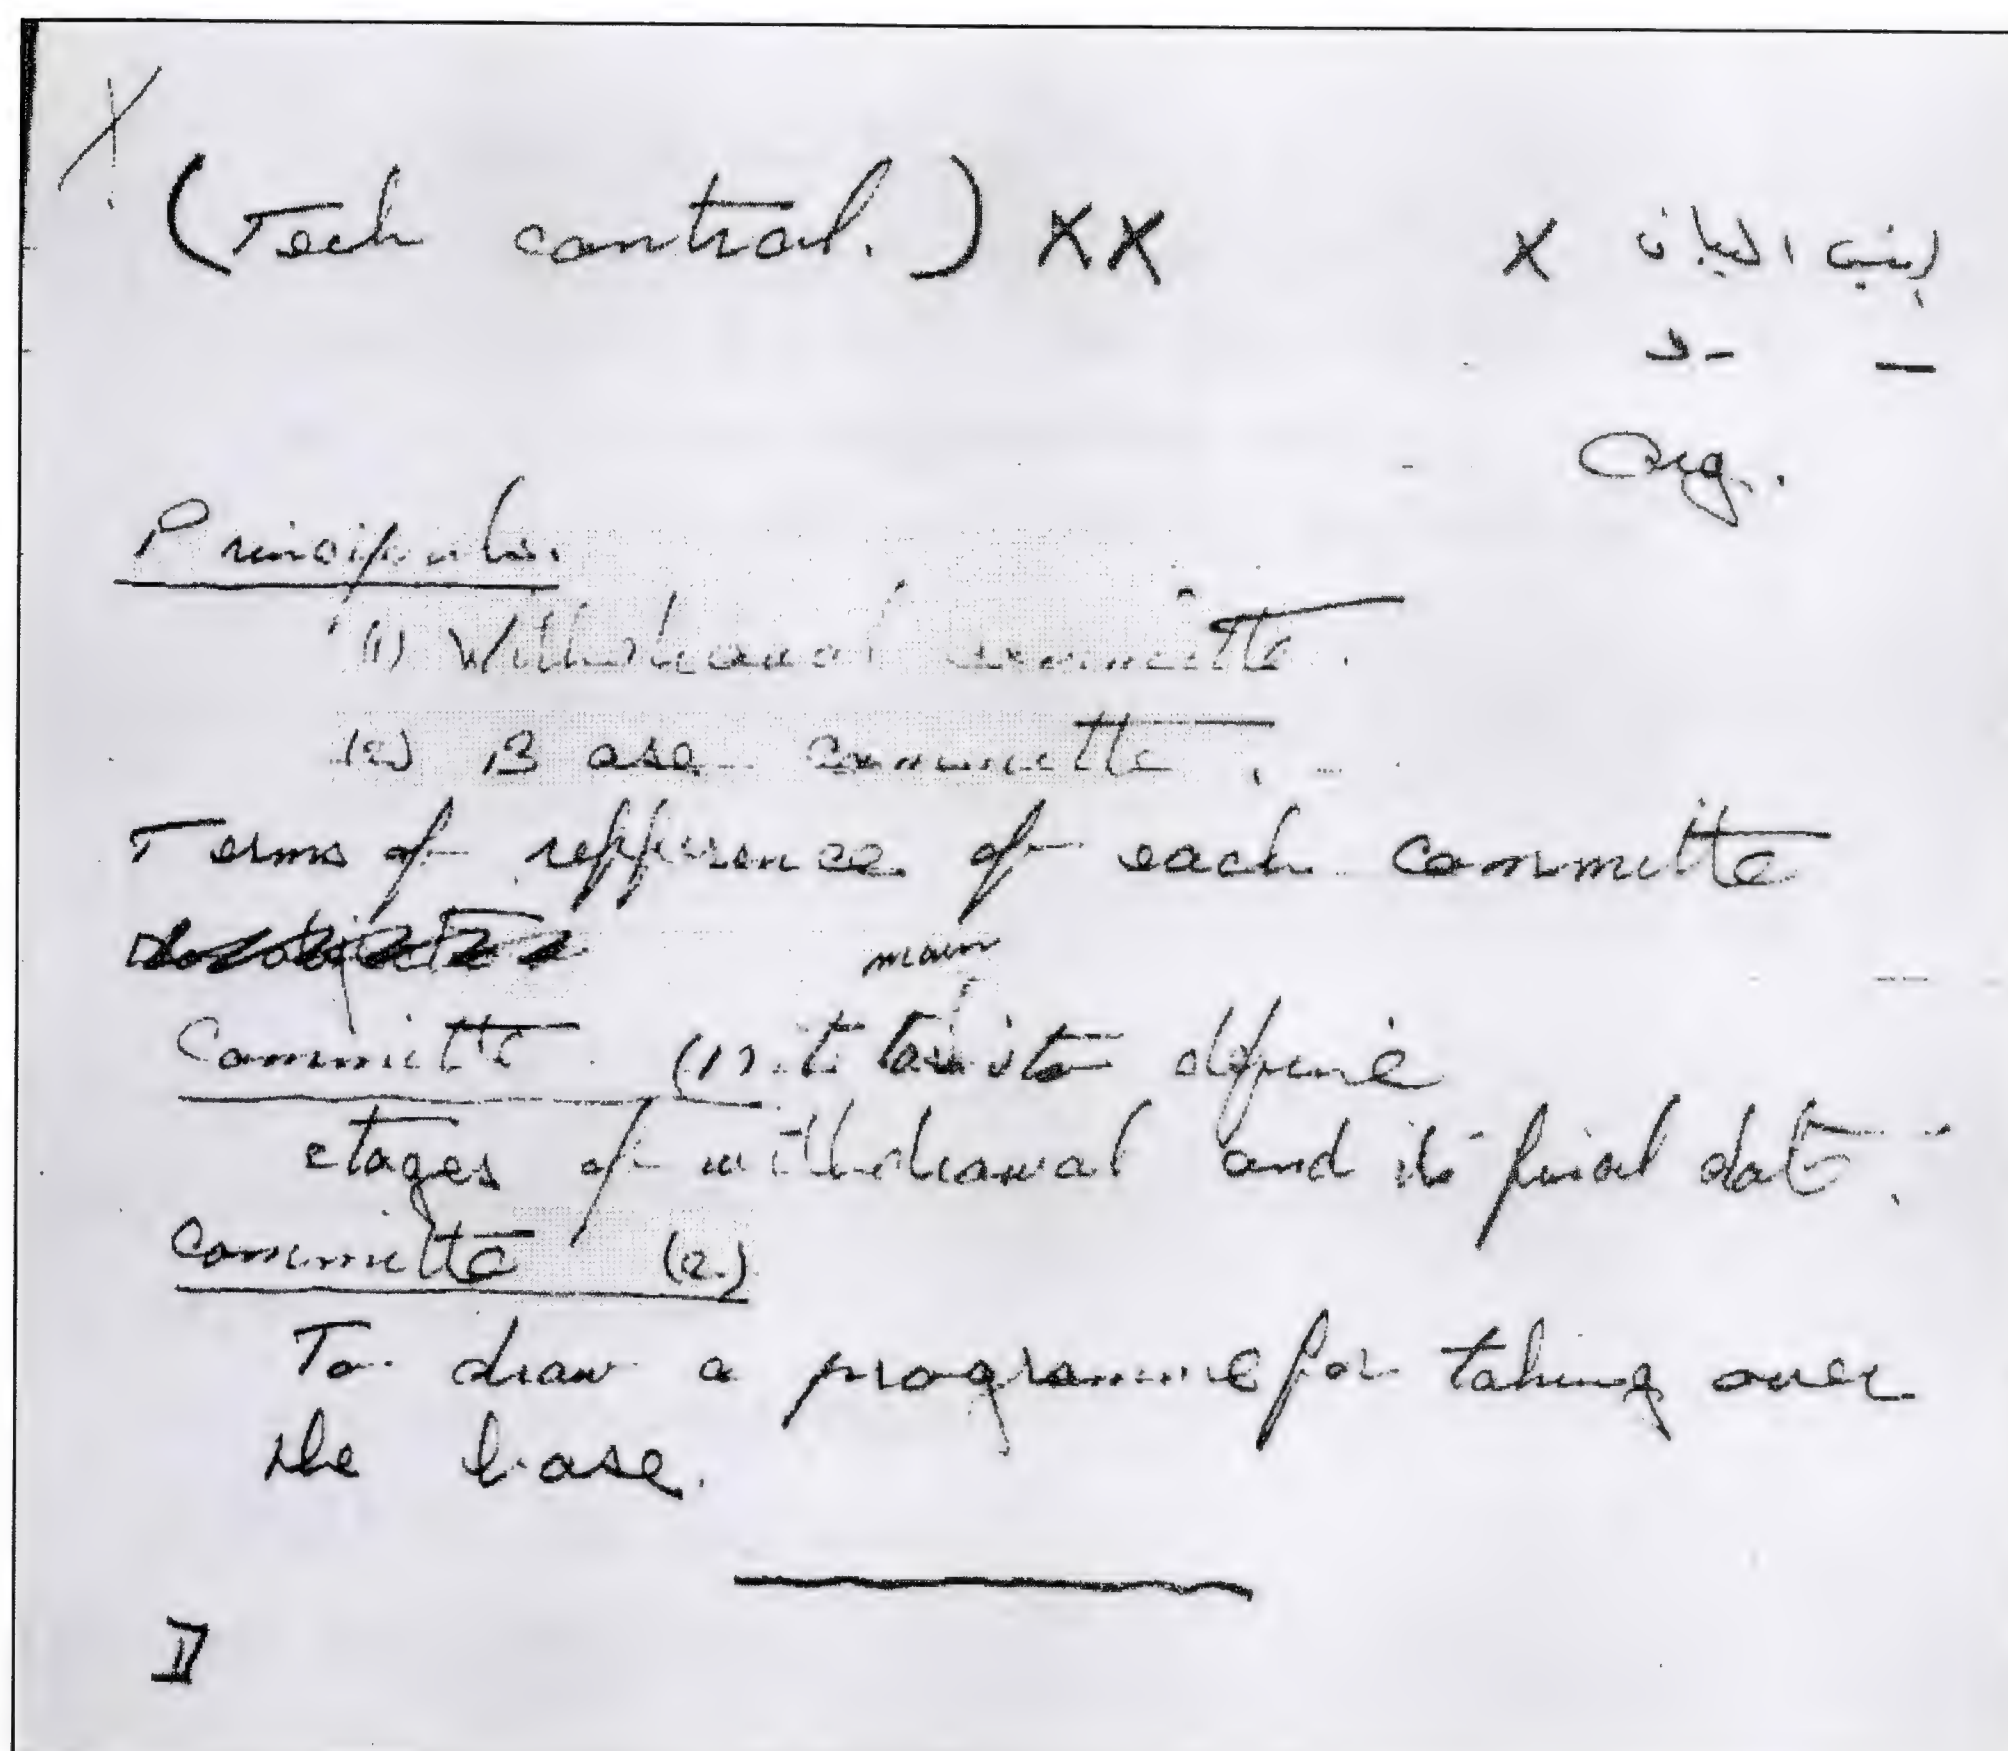 (Tech control.) XX
X
Org.
Principals.
(1) Withdrawal committe.
(2) Base committe.
Terms of refference of each committe
main
Committe (1) its task is to define
stages of withdrawal and its final date.
Committe (2)
To draw a programme for taking over
the base.
II